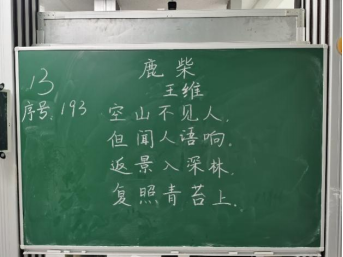 13
序号.193
鹿柴
王维
空山不见人,
但闻人语响.
返景入深林.
复照青苔上.